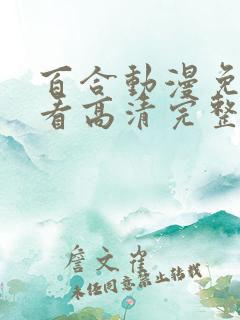 百合動漫免
看高清完整
詹文崔
未经同意禁止转载